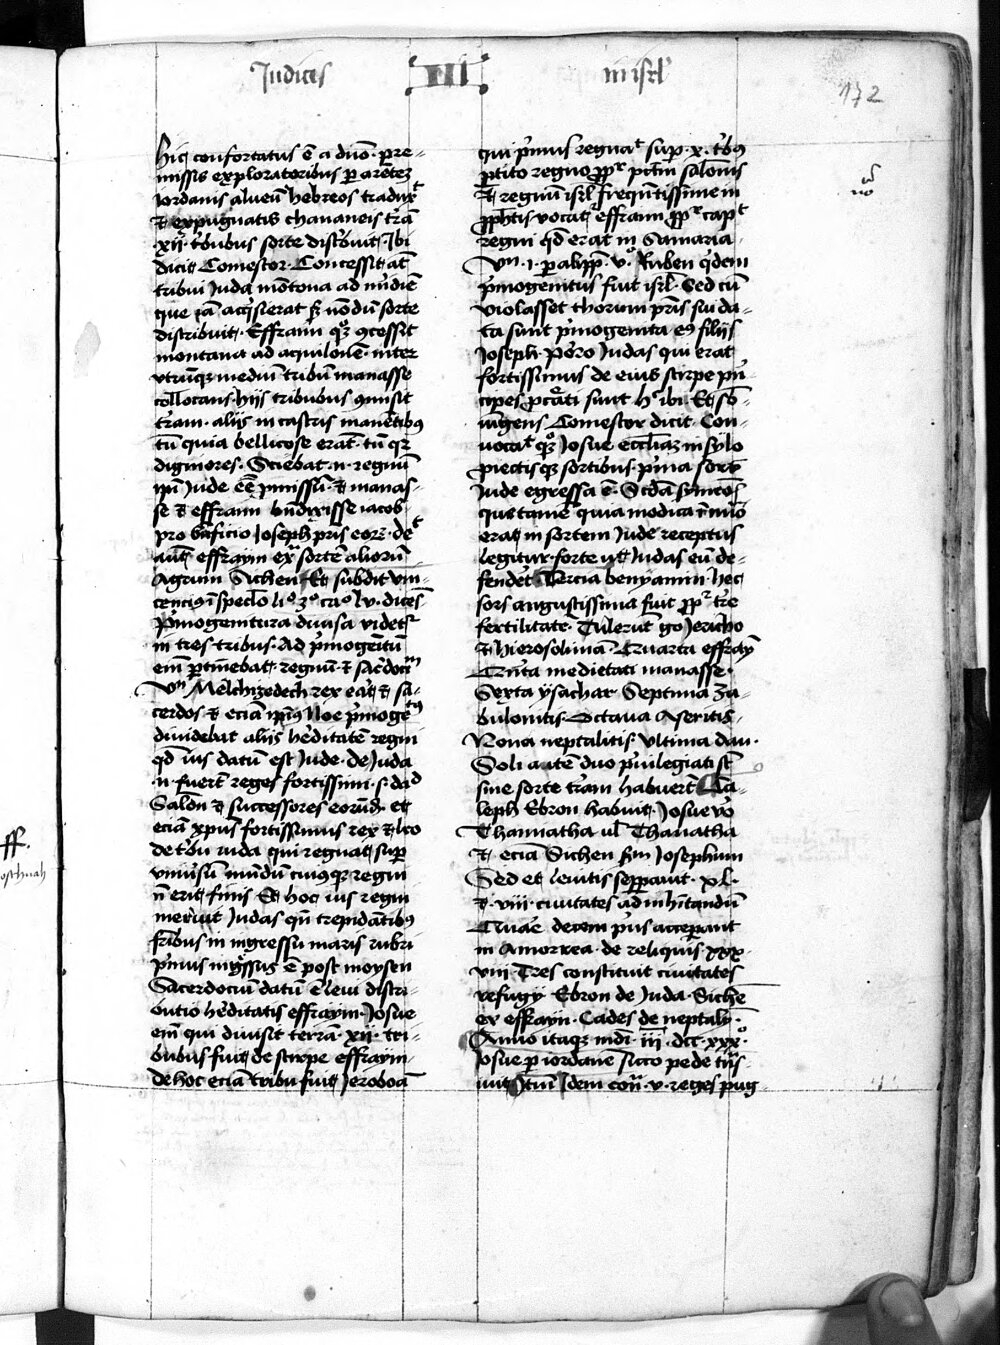 Judices III in isrl
172
Hic confortatus ē a dn̄o · p̄re-
missis exploratoribus p arētez
Jordanis alueū hebreos traduxᵗ
et expugnatis chananeis t̄rā
xij · tribubus sorte distribuit · Ibi
dicit Comestor · Concessit at̄
tribui Juda mōtana ad m̄idiē
que iā acq̄sierat sꝫ nōdū sorte
distribuit · Effraim qꝫ ꝯcessit
montana ad aquilonē · inter
vtrūqꝫ mediū tribū manasse
collocans · hijs tribubus ꝯmisit
t̄ram · alijs in castris manētibꝯ
tū quia bellicose erāt · tū qꝛ
digniores · Sciebat · n · regnū
ipī Jude eē p̄missū · et manas-
se et effraim bn̄dixisse iacob
pro b̄nficio Joseph pr̄is eorꝫ · deᵗ
aūt effraym ex sortē aliorū
Agrum Sichen · Et subdit vin-
cencius ī speclo liº 3º caº lv · dicēs
P̄mogenitura diuisa videtʳ
in tres tribus · Ad p̄mogenitū
em̄ ꝑtinebat regnū · et sac̄dociū
Vn̄ Melchizedech rex erat et sa-
cerdos et eciā ipīus Noe p̄mogeᵗꝯ
diuidebat alijs he̅ditatē regni
qd̄ ius datū est Jude · de Juda
·n· fuerūt reges fortissimi · s · dd
Salon et successores eorūd · et
eciā xpus fortissimus rex et leo
de tribu iuda qui regnat suꝑ
vniūsū mūdū cuiusqꝫ regni
n̄ erit finis Et hoc ius regni
meruit Judas qn̄ trepidātibꝯ
fr̄ibus in ingressu maris rubri
p̄mus ingressus ē post moysen
Sacerdociū datū ē leui distri-
butio he̅ditatis effraym · Josue
em̄ qui diuisit terrā · xij · tri-
bubus fuit de stirpe effraym
de hoc eciā tribu fuit Jeroboā
qui p̄mus regnaᵗ suꝑ · x · tribꝯ
ꝑtito regno ꝓpʳ pctm̄ salōnis
et regnū isrl̄ frequētissime in
ꝓphetis vocat effraim ꝓpʳ capᵗ
regni qd̄ erat in Samaria
Vn̄ · 1 · ꝑalipp · vº Ruben q̄dem
p̄mogenitus fuit isrl̄ · Sed cū
violasset thorum pr̄is sui da-
ta sunt p̄mogenita eꝯ filijs
Joseph · Porro Judas qui erat
fortissimus de eius stirpe p̄n
cipes pcrēati sunt hᵉ ibi · Et
Comestor dicit · Con-
uocaᵗ qꝫ Josue ecclīaꝫ in sylo
p̄iectis qꝫ sortibus · p̄ma sors
Jude egressa ē · Sc̄da symeōī
que tamē quia modica nimiū
erat in sortem Jude receptus
legitur · forte ut Judas eū de-
fendet Tercia benyamin · hec
sors angustissima fuit ꝓpʳ tr̄e
fertilitatē · Tulerūt go Jericho
et hierosolima · Quarta effraȳ
Quīta medietati manasse ·
Sexta ysachar Septima Za-
bulonitis · Octaua Aseritis ·
Nona neptalitis · vltima dan ·
Soli autē duo p̄uilegiati sūt
sine sorte t̄ram habuerūt Ca-
leph Ebron habuit · Josue vo
Thamnatha vl̄ Thanatha
et eciā Sichen s̄m Josephum
Sed et leuitis sepparauit · xl ·
et · viii · ciuitates ad inhītandū
Quae decem p̄us acceꝑant
in Amorrea · de reliquis · xxx ·
viii · Tres constituit ciuitates
refugij Ebron de Juda · Sichē
ex effraym · Cades de neptaly ·
Anno itaqꝫ mdī · iii · dcc · xxxº
Josue ꝑ iordanē sicco pede trīs
iuit Itm̄ Idem cōn · v · reges pug
ff.